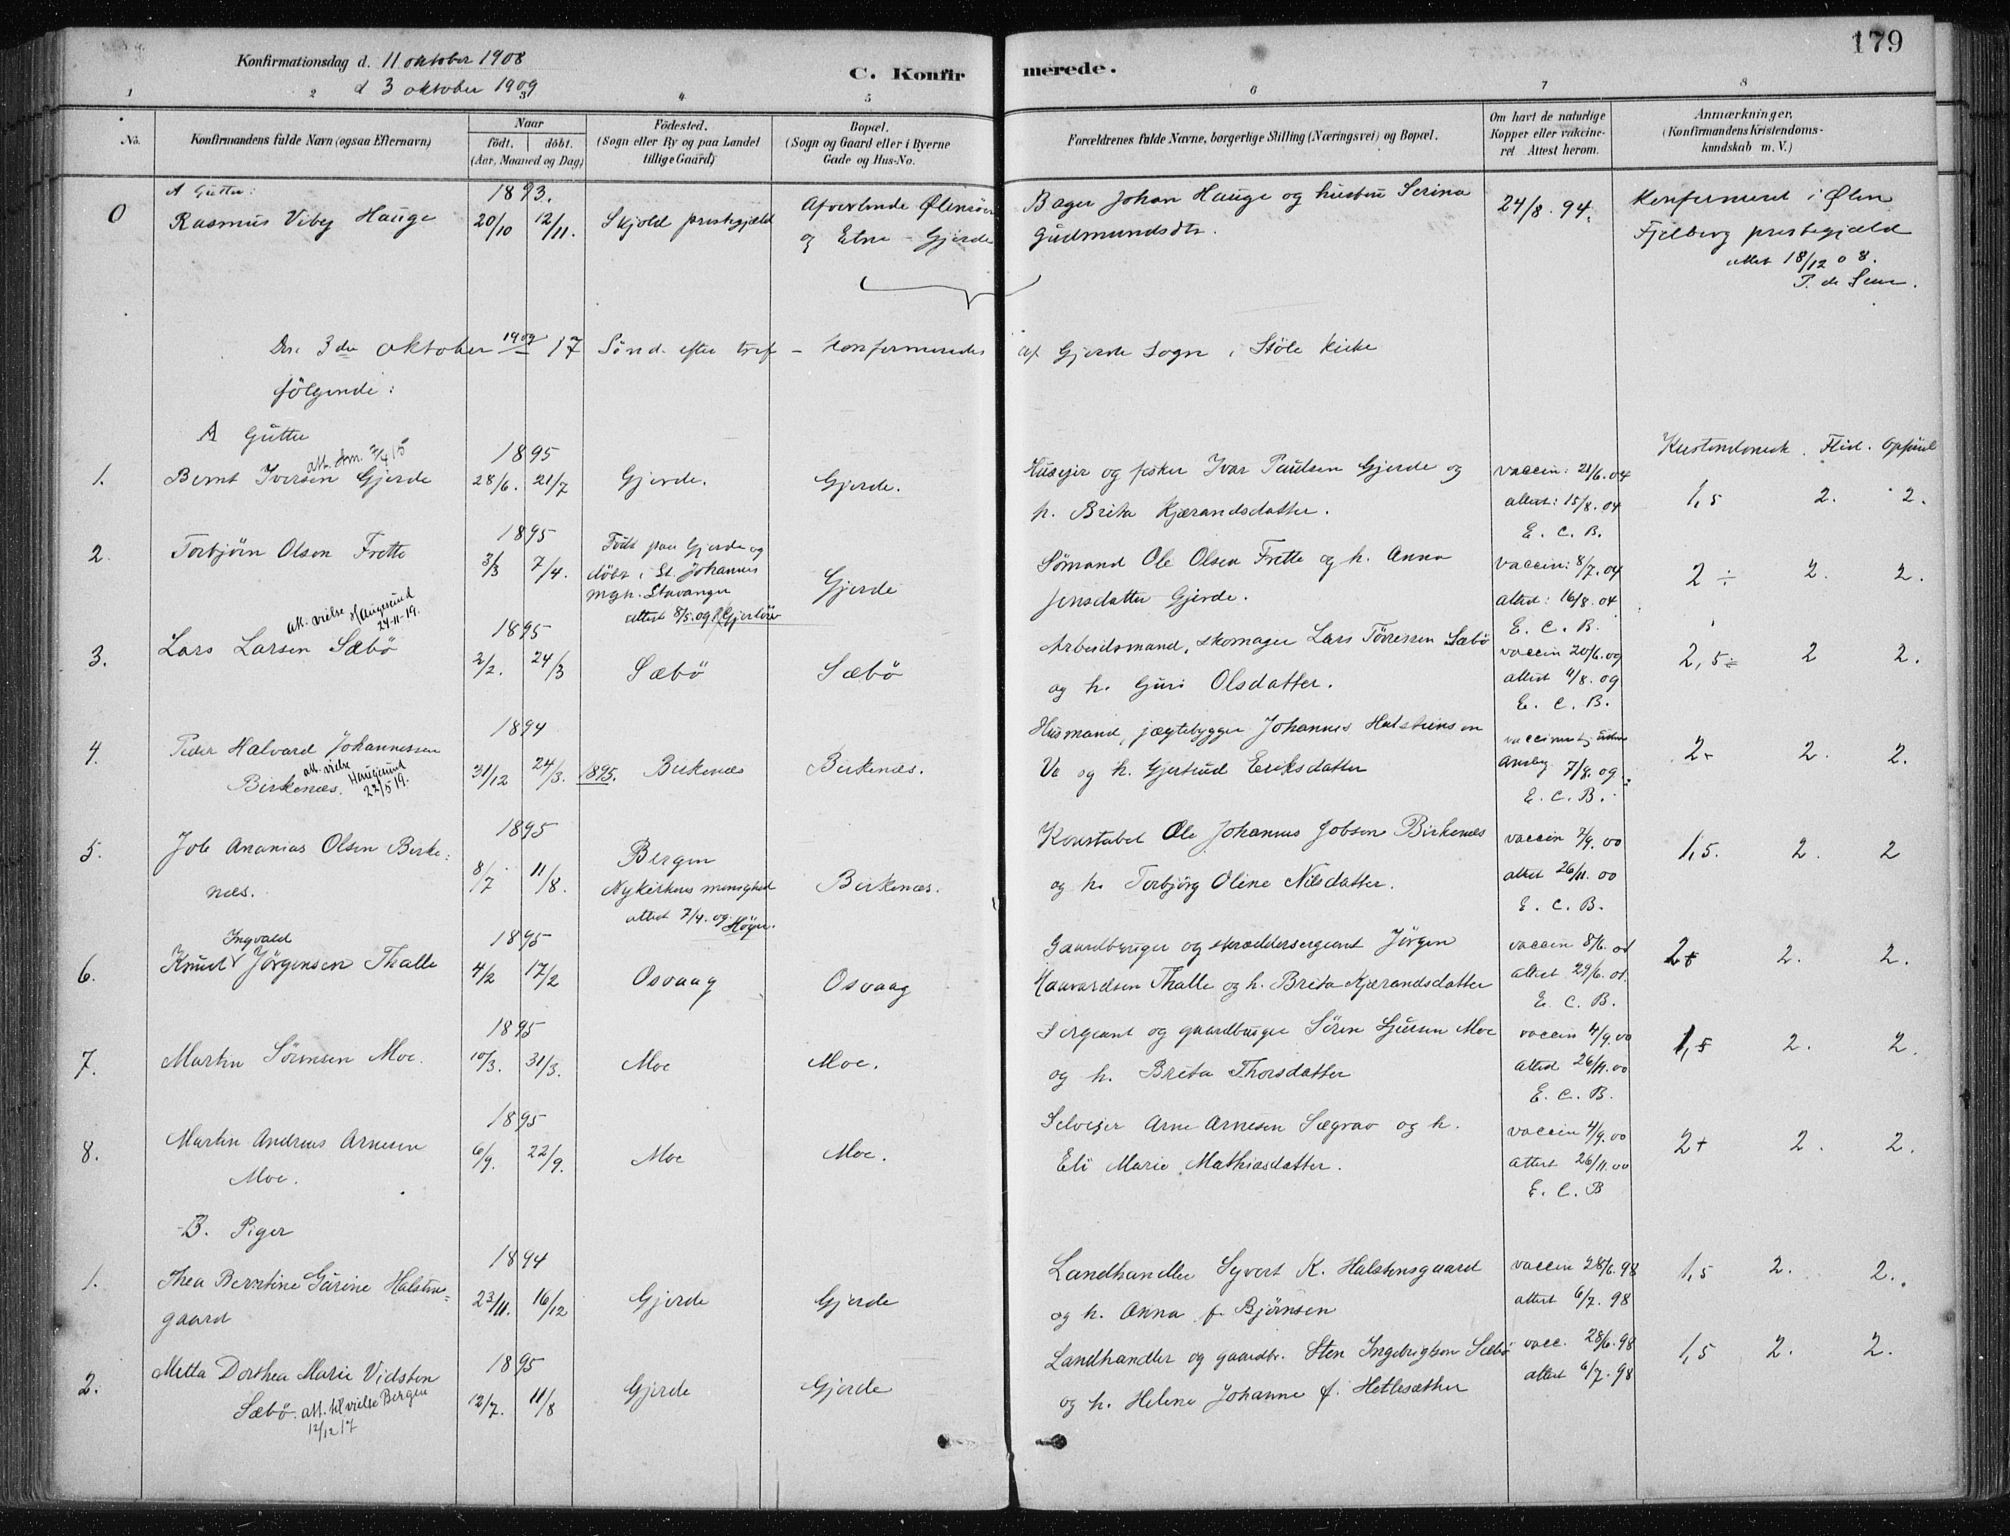 179
Konfirmationsdag d. 11 oktober 1908
d 3 oktober 1909
C. Konfirmerede.
1 2 3 4 5 6 7 8
No. Konfirmandens fulde Navn (ogsaa Efternavn)
Naar
født. døbt.
(Aar, Maaned og Dag)
Fødested.
(Sogn eller By og paa Landet
tillige Gaard)
Bopæl.
(Sogn og Gaard eller i Byerne
Gade og Hus-No.
Forældrenes fulde Navne, borgerlige Stilling (Næringsvei) og Bopæl.
Om havt de naturlige
Kopper eller vakcine-
ret Attest herom.
Anmærkninger,
(Konfirmandens Kristendoms-
kundskab m. V.)
A Gutter:
1893.
0 Rasmus Vibey Hauge 20/10 12/11. Skjold prestegjæld
og Etne - Gjerde
Bager Johan Hauge og hustru Serina
Gudmundsdtr.
24/8. 94.
Konfirmeret i Ølen
Fjelberg prestegjæld
attest 18/12 08.
Den 3die oktober 1909 17 Sønd. efter tref - konfirmeredes af Gjerde sogn i Stöle kirke
følgende:
A Gutter
Kristendomsk. Flid. Opførsel
1895
1. Bernt Iversen Gjerde 28/6. 21/7 Gjerde. Gjerde.
Husejer og fisker Ivar Paulsen Gjerde og
h. Brita Kjærandsdatter.
vaccin: 21/6. 04
attest: 15/8. 04
E. C. B.
1,5 2. 2.
1895
2. Torbjørn Olsen Frette 3/3 7/4.
Født paa Gjerde og
döbt i St. Johannes
mgh. Stavanger
attest 8/5. 09
Gjerde
Sömand Ole Olsen Frette og h. Anna
Jensdatter Gjerde.
vaccin: 8/7. 04
attest: 16/8. 04
E. C. B.
2 ÷ 2. 2.
att. vielse Haugesund
24-11-19.
1895
3. Lars Larsen Sæbö 2/2. 24/3 Sæbö Sæbö
Arbeidsmand, skomager Lars Tönnessen Sæbö
og h. Guri Olsdatter.
vaccin 20/6. 09
attest 11/8. 09
E. C. B.
2,5÷ 2 2.
1894
4. Peder Halvard Johannessen
Birkenæs. att. vielse Haugesund
22/5 19.
31/12 24/3. 1895. Birkenæs Birkenæs.
Husmand, jægtebygger Johannes Halsteinsen
Va og h. Gjertrud Eriksdatter
7/8. 09
E. C. B.
2- 2. 2.
1895
5. Job Ananias Olsen Birke-
næs.
8/7 11/8.
Bergen
Nykirkens menighed
attest 7/4. 09
Birkenæs.
Konstabel Ole Johannes Jobsen Birkenæs
og h. Torbjörg Oline Nilsdatter.
vaccin 7/9. 00
attest 26/11. 00
E. C. B.
1,5. 2. 2
Ingvald
1895
6. Knud Jörgensen Thalle 4/2 17/2 Osvaag Osvaag
Gaardbruger og skræddersergeant Jörgen
Haavardsen Thalle og h. Brita Kjærandsdatter
vaccin 8/6. 01
attest 29/6. 01.
E. C. B.
2+ 2. 2.
1895
7. Martin Sörensen Moe. 10/3. 31/3. Moe Moe.
Sergeant og gaardbruger Sören Moe
og h. Brita Thorsdatter
vaccin 4/9. 00
attest 26/11. 00
E. C. B.
1,5 2. 2.
1895
8. Martin Andreas Arnesen
Moe.
6/9. 22/9. Moe Moe.
Selvejer Arne Arnesen Sægrav og h.
Eli Marie Mathiasdatter.
vaccin 4/9. 00
attest 26/11. 00
E. C. B
2+ 2. 2.
B. Piger
1894
1. Thea Berntine Gurine Halstens-
gaard
23/11. 16/12 Gjerde Gjerde
Landhandler Syvert K. Halstensgaard
og h. Anna f. Bjørnsen
vaccin 28/6. 98
attest 6/7. 98
1,5 2. 2.
1895
2. Metta Dorthea Marie Vidsten
Sæbö. att. til vielse Bergen
12/12 17
12/7. 11/8 Gjerde Gjerde
Landhandler og gaardbr. Sten Ingebrigtsen Sæbö
og h. Helene Johanne f. Hetlesæther
vacc. 28/6. 98
attest 6/7. 98
1,5 2. 2.